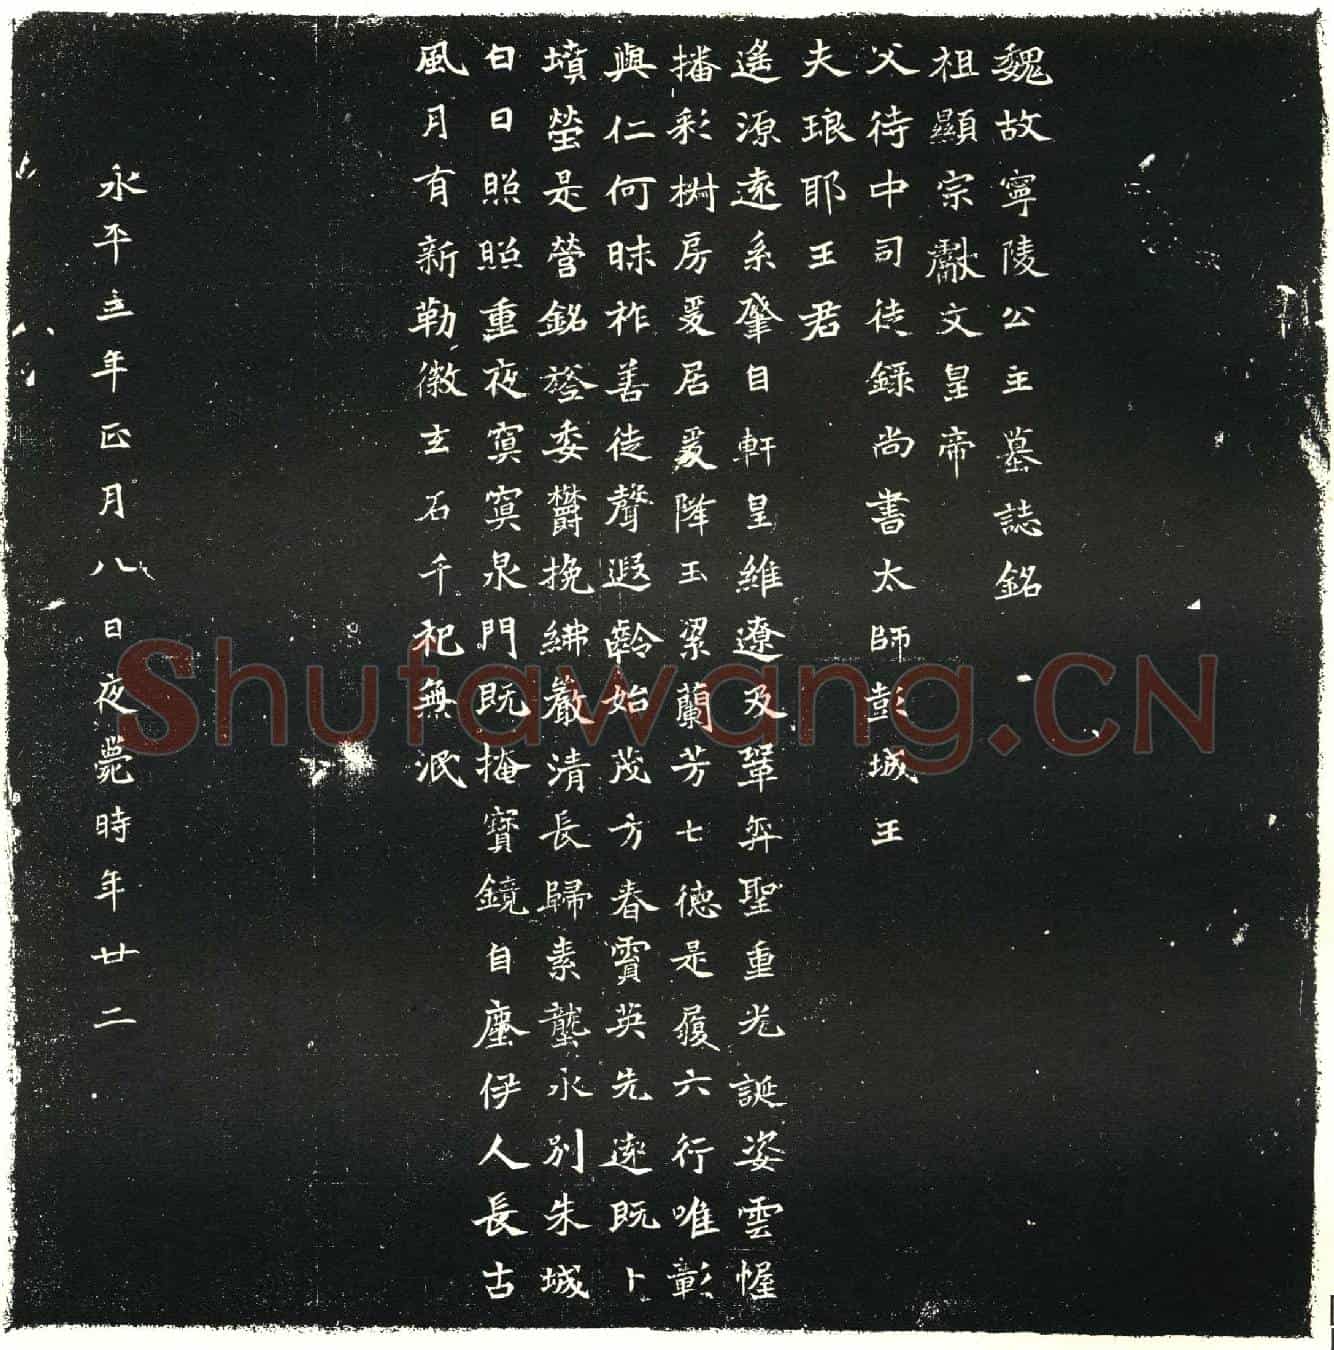 魏故寧陵公主墓誌銘
祖顯宗獻文皇帝
父侍中司徒錄尚書太師彭城王
夫琅耶王君
遙源遠系肇自軒皇維遼及鞏弈聖重光誕姿雲幄
播彩樹房爰居爰降玉潔蘭芳七德是履六行唯彰
與仁何昧祚善徒聲遐齡始茂方春實英先遠既卜
墳塋是營銘旌委欝挽紼嚴清長歸素壟永別朱城
白日照照重夜寞寞泉門既掩寶鏡自塵伊人長古
風月有新勒徽玄石千祀無泯
永平三年正月八日夜薨時年廿二
Shufawang.CN